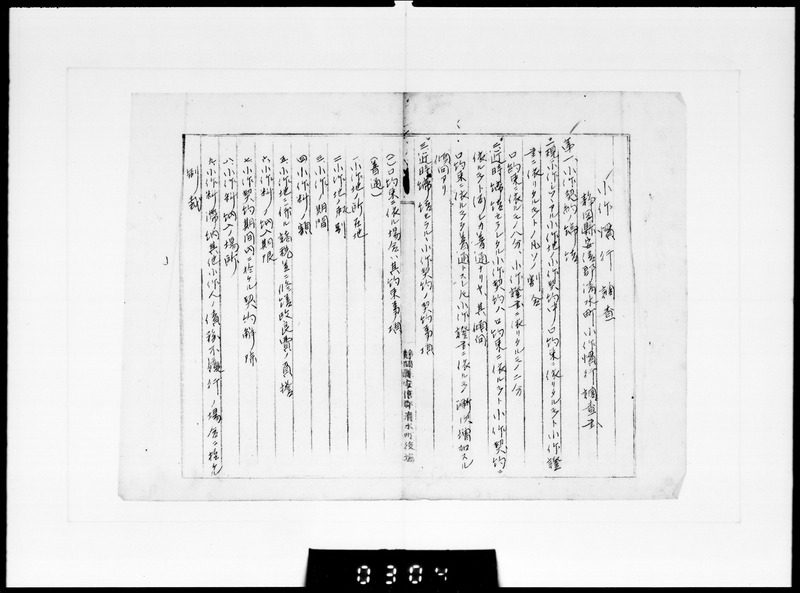 小作慣行調査
静岡縣安倍郡清水町小作慣行調査書
第一、小作契約締結
二、現ニ小作シツヽアル小作地小作契約中口約束ニ依リタルモノト小作證
書ニ依リタルモノトノ凡ソノ割合
口約束ニ依ルモノ八分、小作證書ニ依リタルモノ二分
三、近時締結セラレタル小作契約ハ口約束ニ依ルモノト小作契約ニ
依ルモノト何レカ普通ナリヤ其傾向
口約束ニ依ルモノヲ普通トスレ共小作證書ニ依ルモノ漸次増加スル
傾向アリ
三、近時締結セラルヽ小作契約ノ契約事項
(イ)口約束ニ依ル場合ハ其約束事項
(普通)
一小作地ノ所在地
二小作地ノ段別
三小作ノ期間
四小作料ノ額
五小作地ニ係ル諸税並ニ修繕改良費ノ負擔
六小作料ノ納入期限
七小作契約期間内ニ於ケル契約ノ解除
八小作料納入ノ場所
九小作料滞納其他小作人ノ債務不履行ノ場合ニ於ケル
制裁
靜岡縣安倍郡清水町役場
0304